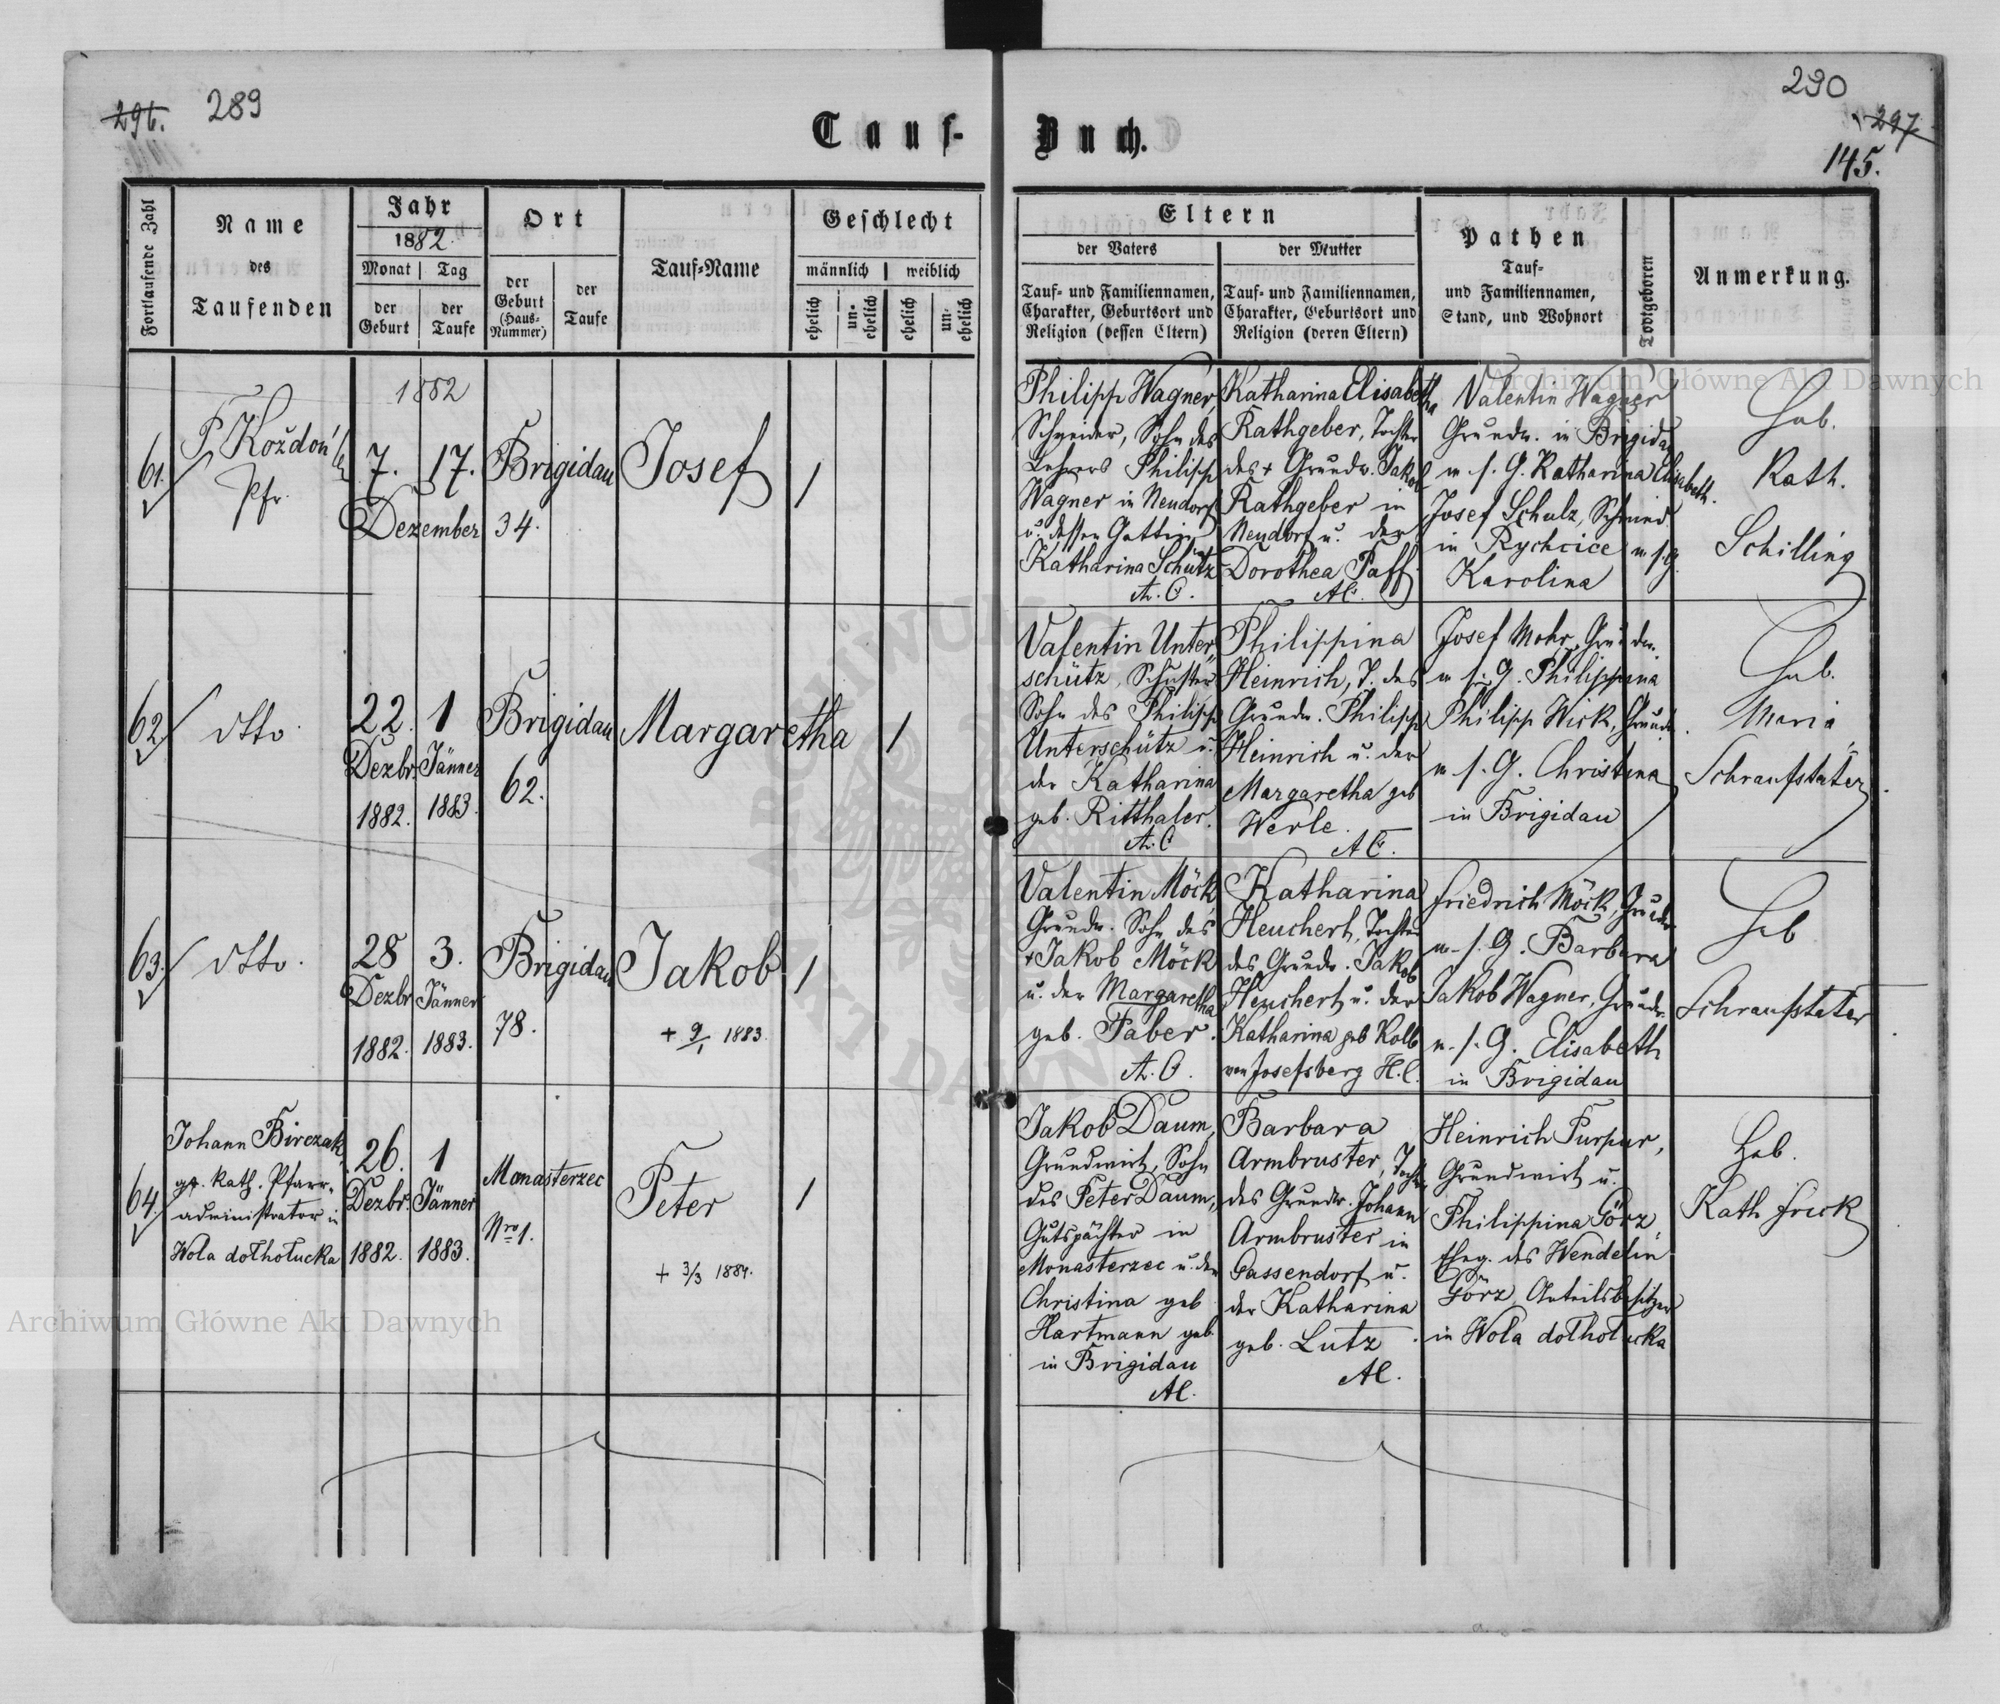 296. 289
Tauf-
Fortlaufende Zahl
Name
des
Taufenden
Jahr
1882.
Monat
Tag
der
Geburt
der
Taufe
Ort
der
Geburt
(Haus-
Nummer)
der
Taufe
Tauf-Name
Geschlecht
männlich
weiblich
ehelich
un-
ehelich
ehelich
un-
ehelich
61.
P. Kożdoń
Pfr.
1882
7. 17.
Dezember
Brigidau
34.
Josef
1
62.
dtto.
22. 1
Dezbr. Jänner
1882. 1883.
Brigidau
62.
Margaretha
1
63.
dtto.
28 3.
Dezbr. Jänner
1882. 1883.
Brigidau
78.
Jakob
+ 9/1 1883.
1
64.
Johann Birczak,
gr. Kath. Pfarr-
administrator in
Wola dołhołucka
26. 1
Dezbr. Jänner
1882. 1883.
Monasterzec
Nro 1.
Peter
+ 3/3 1884.
1
230
297
145.
Buch.
Eltern
der Vaters
Tauf- und Familiennamen,
Charakter, Geburtsort und
Religion (dessen Eltern)
der Mutter
Tauf- und Familiennamen,
Charakter, Geburtsort und
Religion (deren Eltern)
Pathen
Tauf-
und Familiennamen,
Stand, und Wohnort
Todtgeboren
Anmerkung.
Philipp Wagner,
Schneider, Sohn des
Lehrers Philipp
Wagner in Neudorf
u. dessen Gattin
Katharina Schütz
A. C.
Katharina Elisabetha
Rathgeber, Tochter
des + Grundw. Jakob
Rathgeber in
Neudorf u. der
Dorothea Paff.
AC.
Valentin Wagner
Grundw. in Brigidau
m. s. G. Katharina Elisabeth.
Josef Schulz, Schmied
in Rychcice m. s. G.
Karolina
Heb.
Kath.
Schilling
Valentin Unter-
schütz, Schuster
Sohn des Philipp
Unterschütz u.
der Katharina
geb. Ritthaler.
A. C
Philippina
Heinrich, T. des
Grundw. Philipp
Heinrich u. der
Margaretha geb
Werle.
A C.
Josef Mohr, Grundw.
m s. G. Philippina
Philipp Wick, Grundw.
m s. G. Christina
in Brigidau
Heb.
Maria
Schraufstäter
Valentin Möck
Grundw. Sohn des
+ Jakob Möck
u. der Margaretha
geb. Faber.
A. C.
Katharina
Heuchert, Tochter
des Grundw. Jakob
Heuchert u. der
Katharina geb Kolb
von Josefsberg H. C.
Friedrich Möck, Grundw
m. s. G. Barbara
Jakob Wagner, Grundw.
m. s. G. Elisabeth
in Brigidau
Heb
Schraufstäter
Jakob Daum,
Grundwirt, Sohn
des Peter Daum,
Gutspächter in
Monasterzec u. der
Christina geb
Hartmann geb.
in Brigidau
AC.
Barbara
Armbruster, Tochter
des Grundw. Johann
Armbruster in
Gassendorf u.
der Katharina
geb. Lutz.
AC.
Heinrich Purpur,
Grundwirt u.
Philippina Görz,
Eheg. des Wendelin
Görz, Anteilsbesitzer
in Wola dołhołucka
Heb.
Kath Frick
Archiwum Główne Akt Dawnych
Archiwum Główne Akt Dawnych